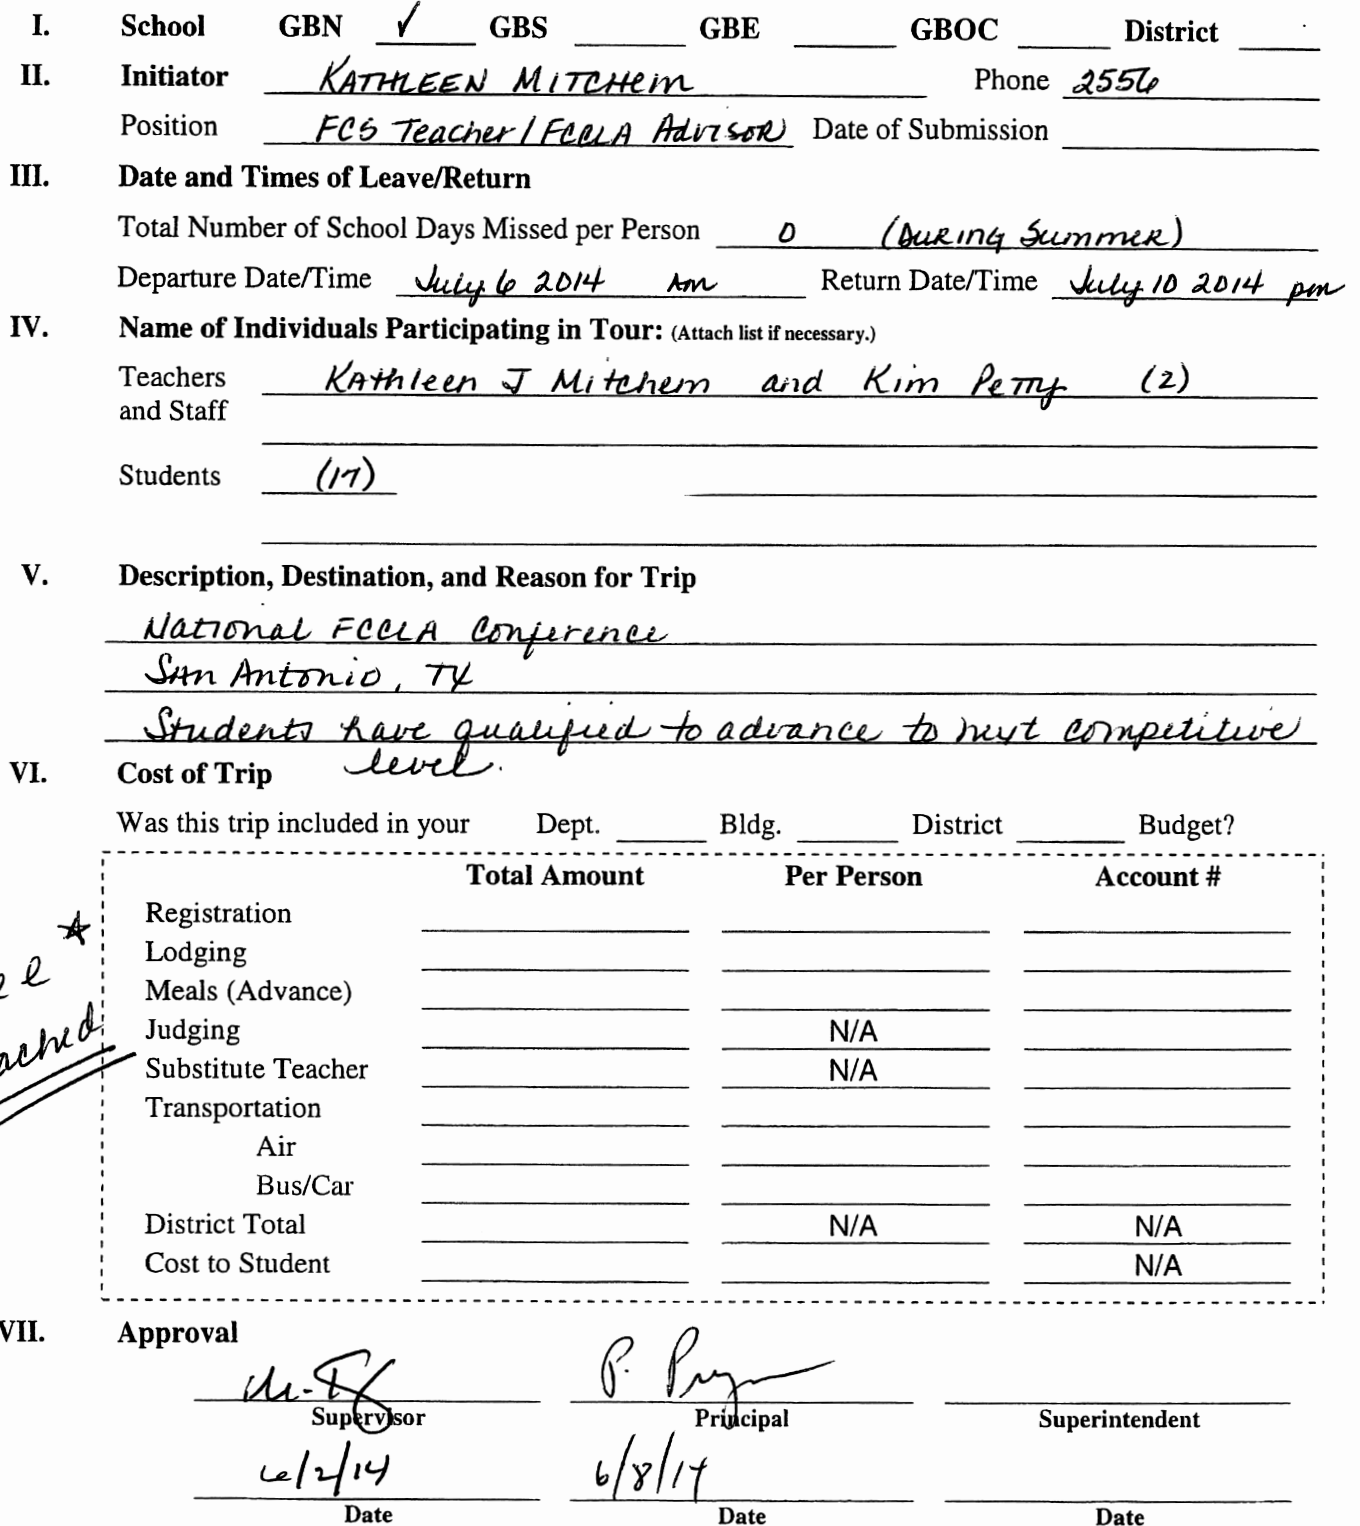 I. School GBN ✓ GBS GBE GBOC District
II. Initiator KATHLEEN MITCHEM Phone 2556
Position FCS Teacher / FCCLA Advisor Date of Submission
III. Date and Times of Leave/Return
Total Number of School Days Missed per Person 0 (DURING SUMMER)
Departure Date/Time July 6 2014 am Return Date/Time July 10 2014 pm
IV. Name of Individuals Participating in Tour: (Attach list if necessary.)
Teachers Kathleen J Mitchem and Kim Petty (2)
and Staff
Students (17)
V. Description, Destination, and Reason for Trip
National FCCLA Conference
San Antonio, TX
Students have qualified to advance to next competitive
level.
VI. Cost of Trip
Was this trip included in your Dept. Bldg. District Budget?
Total Amount Per Person Account #
Registration
Lodging
Meals (Advance)
Judging N/A
Substitute Teacher N/A
Transportation
Air
Bus/Car
District Total N/A N/A
Cost to Student N/A
VII. Approval
Supervisor Principal Superintendent
6/2/14 6/8/14
Date Date Date